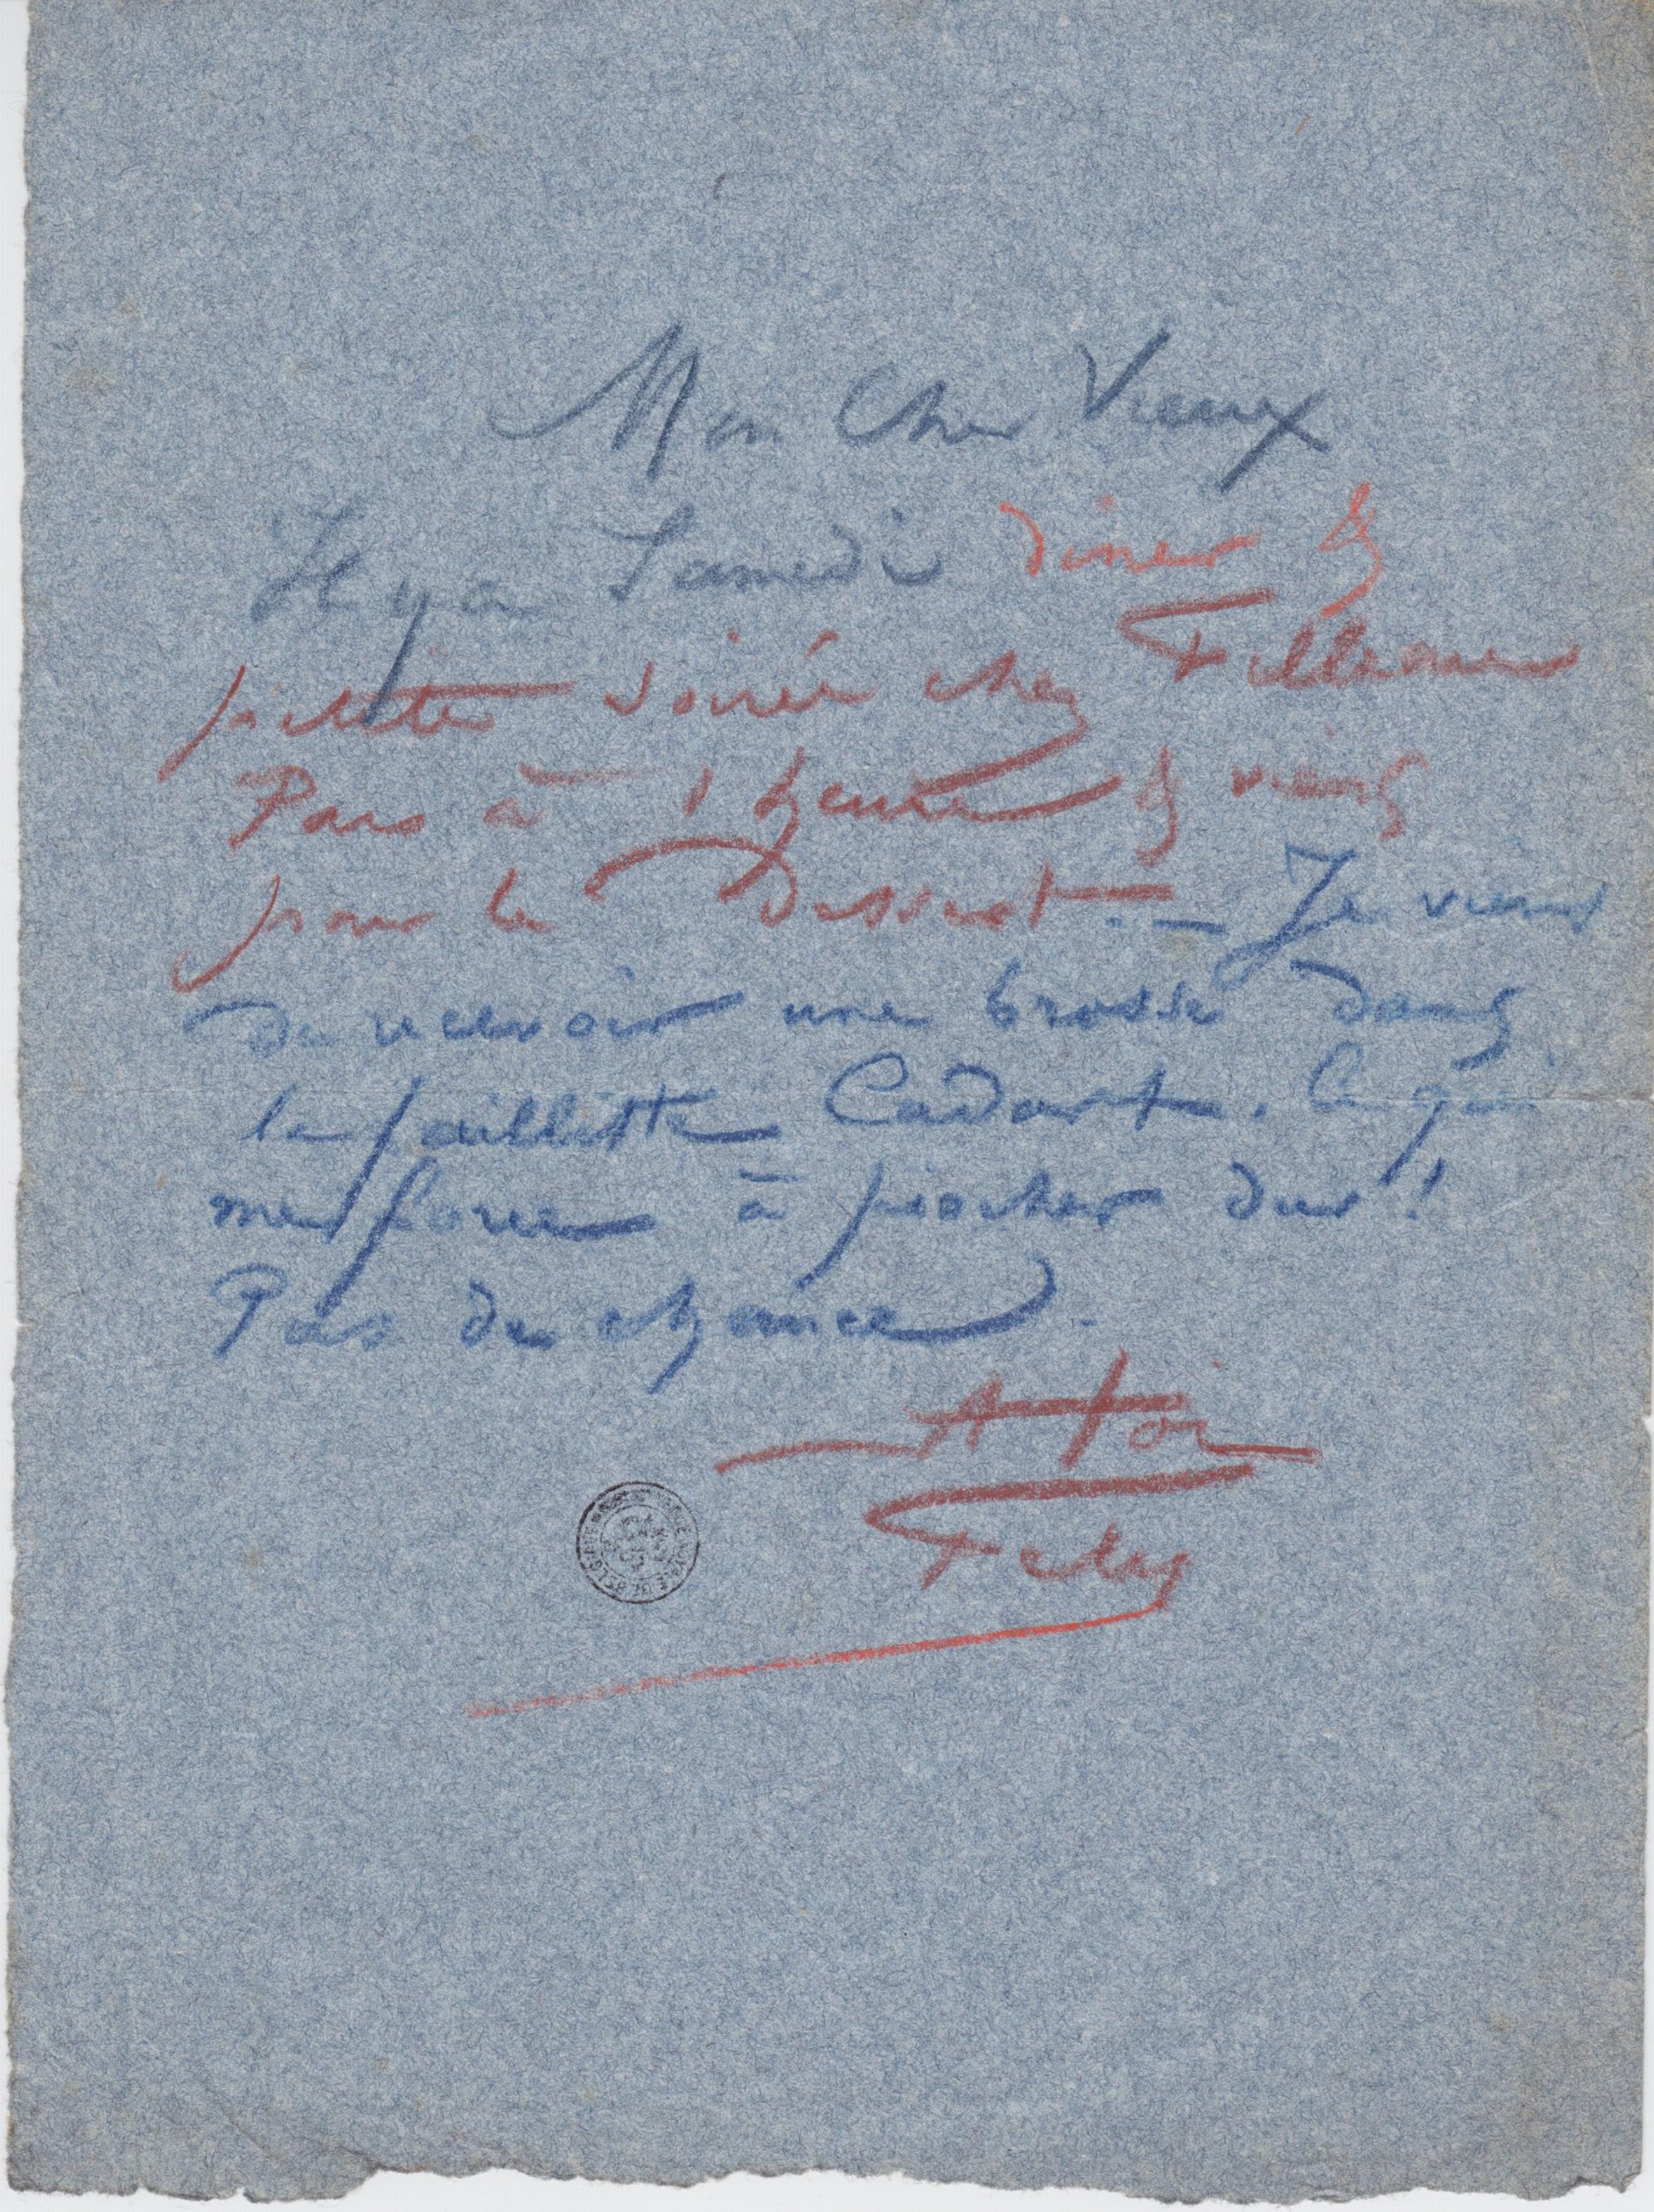 Mon Cher Vieux
Il y a Samedi diner &
petite soirée chez Filleau
Pars à 1 heure & viens
pour le Dessert. – Je viens
de recevoir une brosse dans
la faillitte Cadart. Ce qui
me force à piocher dur !
Pas de chance.
A toi
Fély